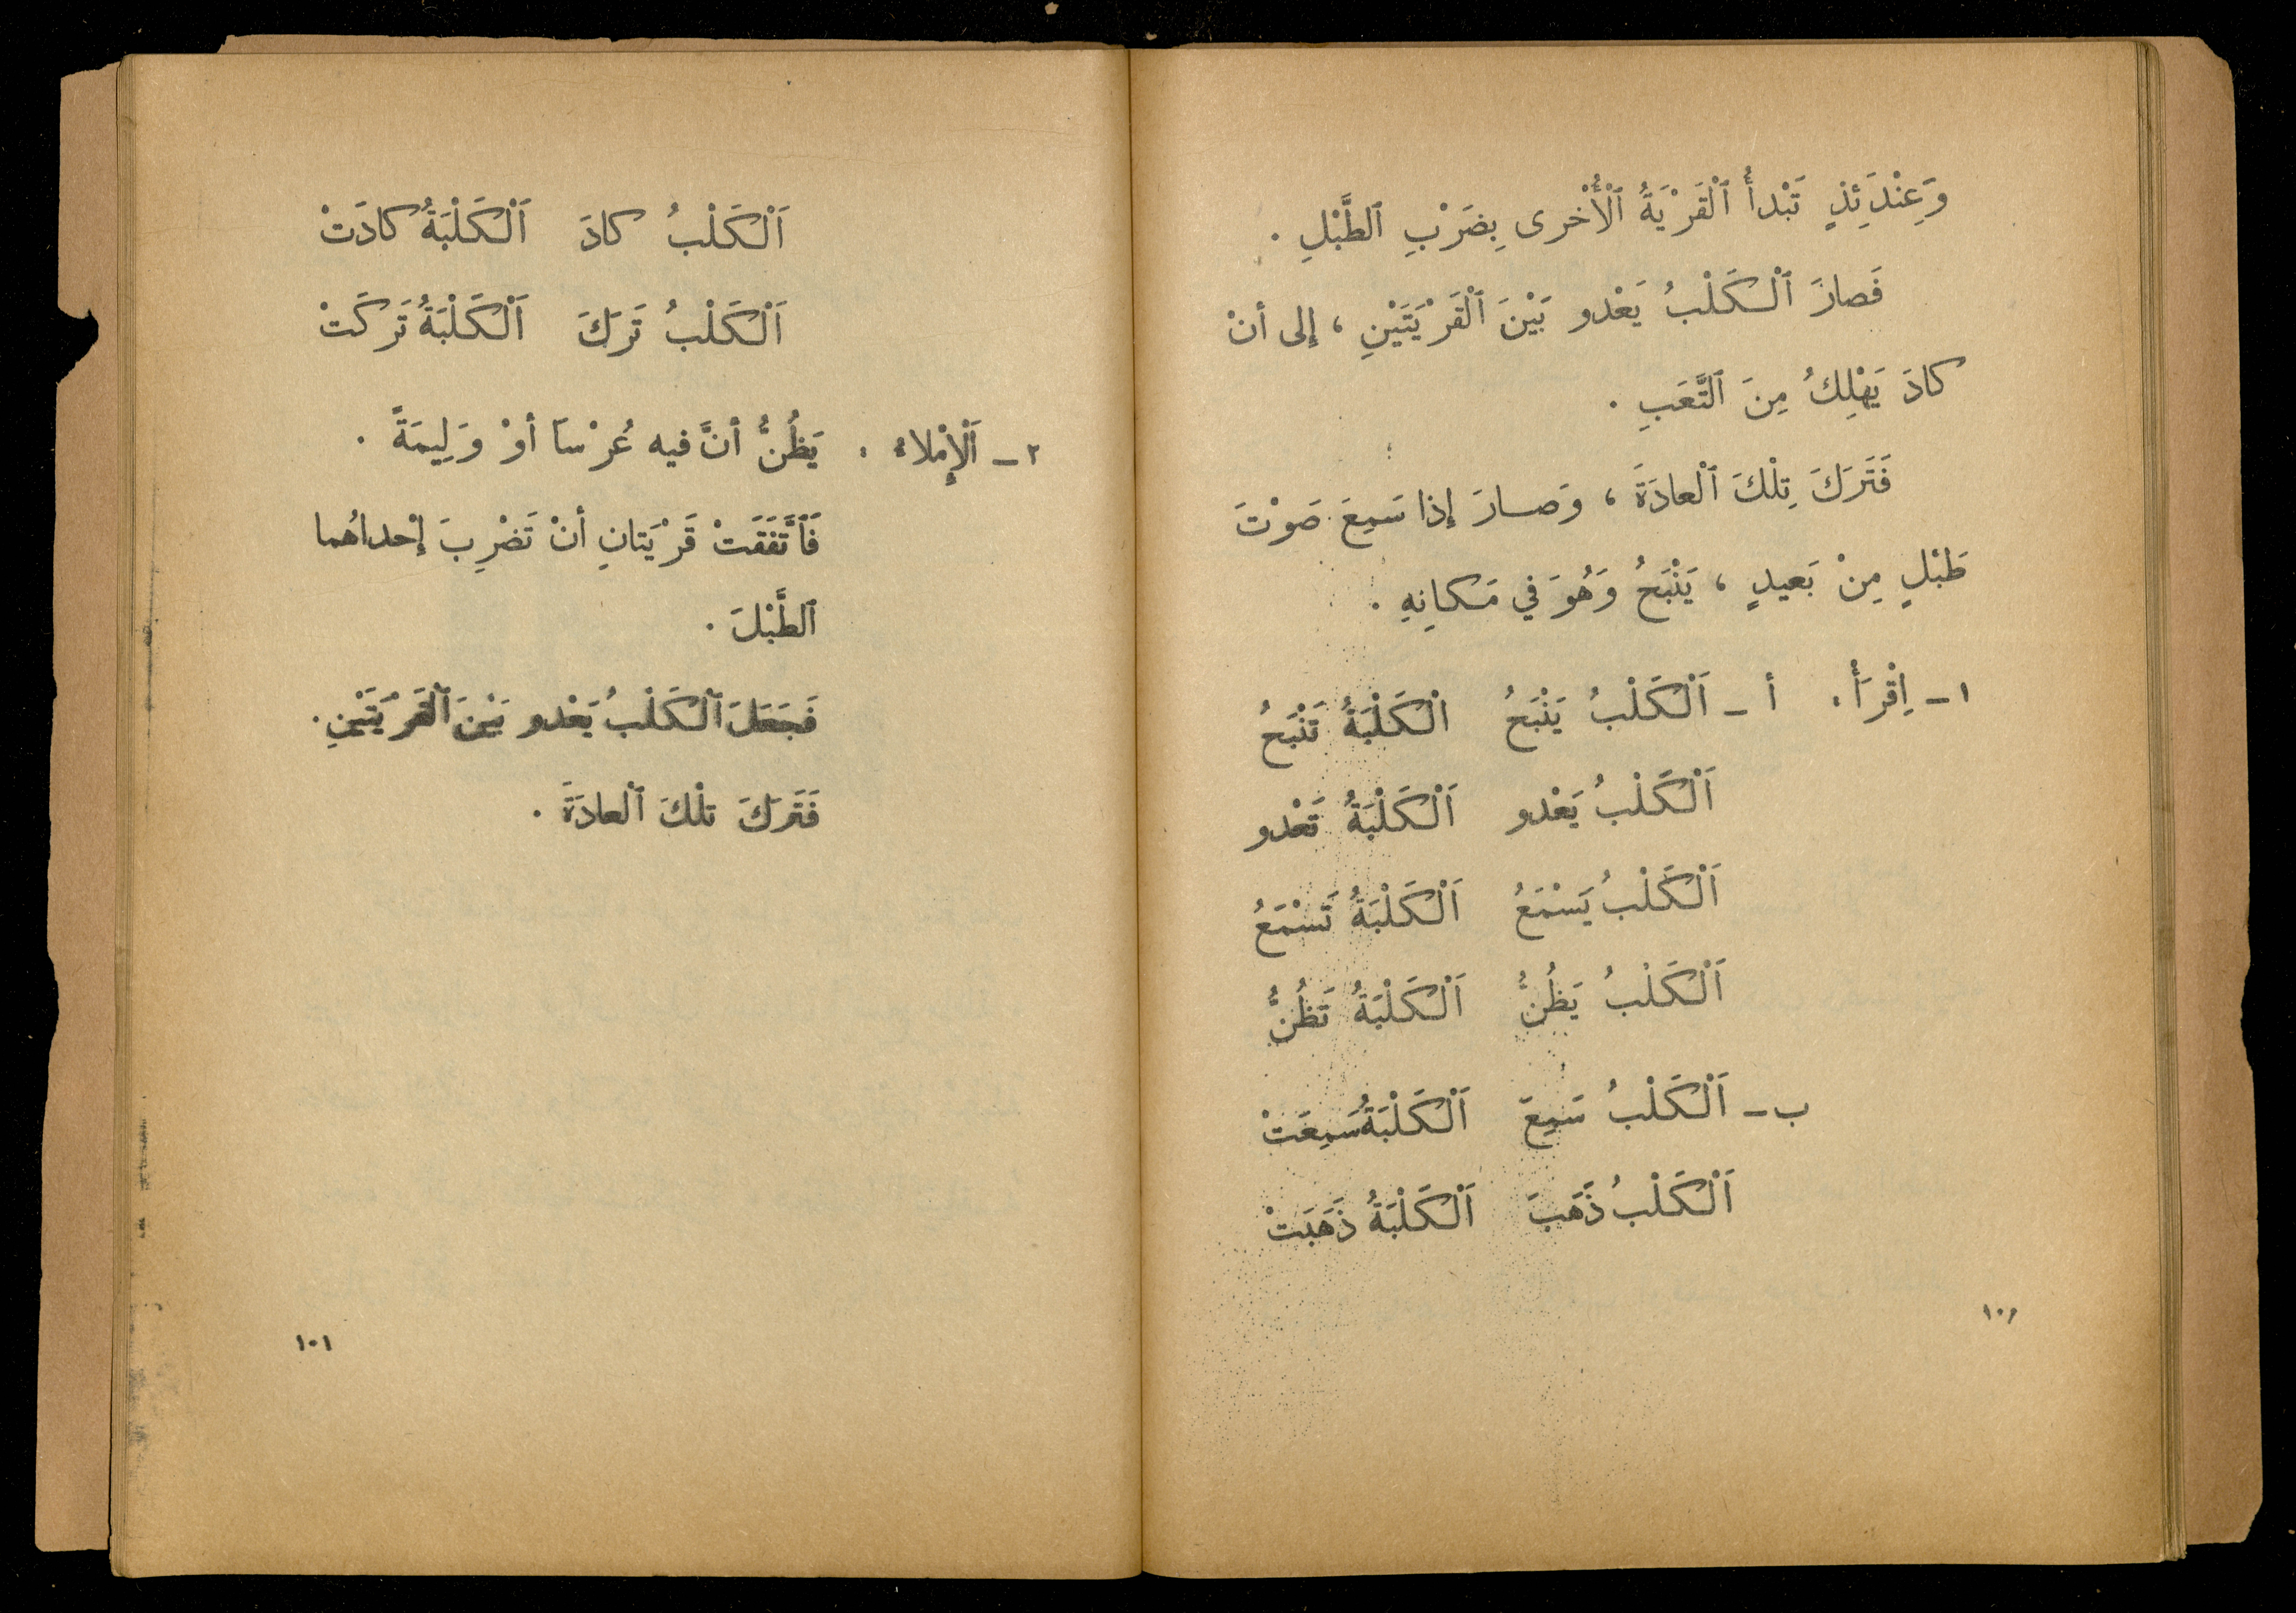 وَعِنْدَئِذٍ تَبْدأُ ٱلْقَرْيَةُ ٱلْأُخْرى بِضَرْبِ ٱلطَّبْلِ .
فَصارَ ٱلْكَلْبُ يَعْدو بَيْنَ ٱلْقَرْيَتَيْنِ ، إلى أنْ
كادَ يَهْلِكُ مِنَ ٱلتَّعَبِ .
فَتَرَكَ تِلْكَ ٱلْعادَةَ ، وَصارَ إذا سَمِعَ صَوْتَ
طَبْلٍ مِنْ بَعيدٍ ، يَنْبَحُ وَهُوَ في مَكانِهِ .
١ ـ اِقْرَأْ . أ ـ اَلْكَلْبُ يَنْبَحُ الْكَلْبَةُ تَنْبَحُ
اَلْكَلْبُ يَعْدو اَلْكَلْبَةُ تَعْدو
اَلْكَلْبُ يَسْمَعُ اَلْكَلْبَةُ تَسْمَعُ
اَلْكَلْبُ يَظُنُّ اَلْكَلْبَةُ تَظُنُّ
ب ـ اَلْكَلْبُ سَمِعَ اَلْكَلْبَةُ سَمِعَتْ
اَلْكَلْبُ ذَهَبَ اَلْكَلْبَةُ ذَهَبَتْ
اَلْكَلْبُ كادَ اَلْكَلْبَةُ كادَتْ
اَلْكَلْبُ تَرَكَ اَلْكَلْبَةُ تَرَكَتْ
٢ ـ اَلْإِمْلاءُ . يَظُنُّ أنَّ فيه عُرْساً أوْ وَلِيمَةً .
فَٱتَّفَقَتْ قَرْيَتانِ أنْ تَضْرِبَ إحْداهُما
ٱلطَّبْلَ .
فَجَعَلَ ٱلْكَلْبُ يَعْدو بَيْنَ ٱلْقَرْيَتَيْنِ .
فَتَرَكَ تلْكَ ٱلْعادَةَ .
١٠١